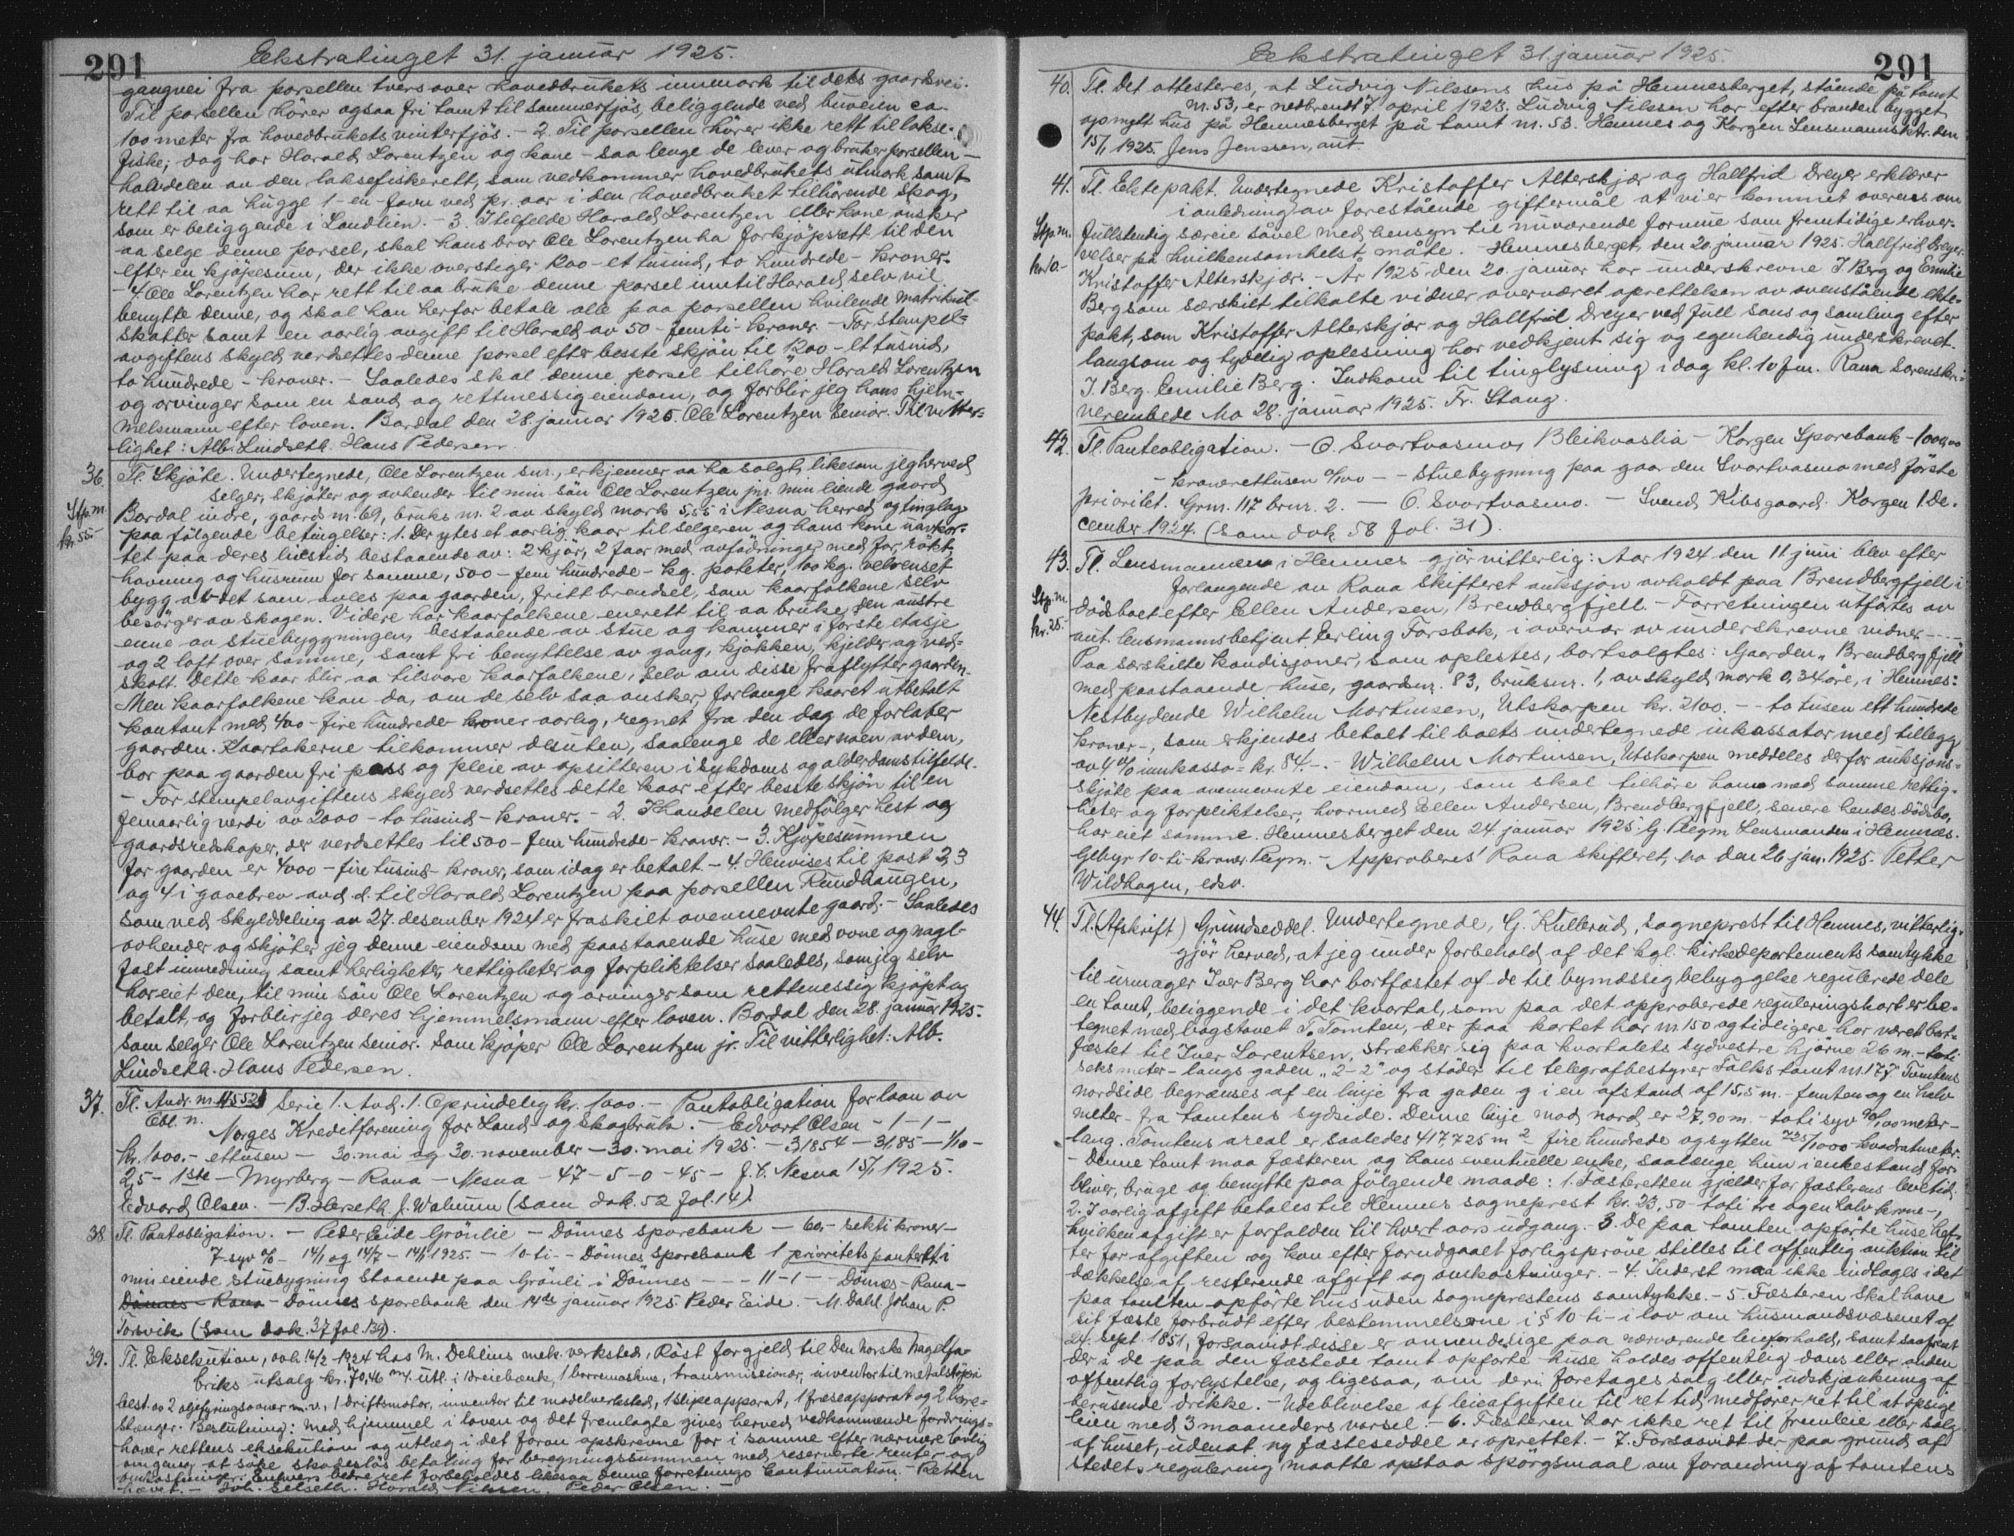 291
Ekstratinget 31. januar 1925.
gangvei fra parsellen tvers over hovedbrukets innmark til dets gaardsvei.
Til parsellen hörer ogsaa fri tomt til sommerfjös, beliggende ved buveien ca.
100 meter fra hovedbrukets vinterfjös. - 2. Til parsellen hörer ikke rett til lakse-
fiske; dog har Harald Lorentzen og kone - saa lenge de lever og bruker parsellen -
halvdelen av den laksefiskerett, som vedkommer hovedbrukets utmark samt
rett til aa hugge 1 - en - favn ved pr. aar i den hovedbruket tilhörende skog,
som er beliggende i Landlien. - 3. I tilfelde Harald Lorentzen eller kone önsker
aa selge denne parsel, skal hans bror Ole Lorentzen ha forkjöpsrett til den
efter en kjöpesum, der ikke overstiger 1200 - et tusind, to hundrede - kroner.
- 4. Ole Lorentzen har rett til aa bruke denne parsel inntil Harald selv vil
benytte denne, og skal han herfor betale alle paa parsellen hvilende matrikul-
skatter samt en aarlig avgift til Harald av 50 - femti - kroner. - For stempel-
avgiftens skyld verdsettes denne parsel efter beste skjön til 1200 - et tusind,
to hundrede - kroner. - Saaledes skal denne parsel tilhöre Harald Lorentzen
og arvinger som en sand og rettmessig eiendom, og forblir jeg hans hjem-
melsmann efter loven. Bardal den 28. januar 1925. Ole Lorentzen senior. Til vitter-
lighet: Alb. Lindseth. Hans Pedersen.
36. Tl. Skjöte. Undertegnede, Ole Lorentzen snr., erkjenner aa ha solgt, likesom jeg herved
selger, skjöter og avhender til min sön Ole Lorentzen jnr. min eiende gaard
Stp.m. Bardal indre, gaards nr. 69, bruks nr. 2 av skyld mark 5,55 i Nesna herred og tinglag
kr. 55.- paa fölgende betingelser: 1. Der ytes et aarlig kaar til selgeren og hans kone uavkor-
tet paa deres livstid, bestaaende av: 2 kjör, 2 faar med avfödninger med for, rökt,
havning og husrum for samme, 500 - fem hundrede - kg. poteter, 100 kg. velrenset
bygg av det som avles paa gaarden, fritt brendsel, som kaarfolkene selv
besörger av skogen. Videre har kaarfolkene enerett til aa bruke den austre
enne av stuebyggningen, bestaaende av stue og kammer i förste etasje
og 2 loft over samme, samt fri benyttelse av gang, kjökken, kjelder og ved-
skott. Dette kaar blir aa tilsvare kaarfolkene, selv om disse fraflytter gaarden.
Men kaarfolkene kan da, om de selv saa ønsker, forlange kaaret utbetalt
kontant med 400 - fire hundrede - kroner aarlig, regnet fra den dag de forlater
gaarden. Kaartakerne tilkommer desuten, saalenge de eller noen av dem,
bor paa gaarden fri pass og pleie av opsitteren i sykdoms og alderdomstilfelde.
- For stempelavgiftens skyld verdsettes dette kaar efter beste skjön til en
femaarlig verdi av 2000 - to tusind - kroner. - 2. I handelen medfölger hest og
gaardsredskaper, der verdsettes til 500 - fem hundrede - kroner. - 3. Kjöpesummen
for gaarden er 4000 - fire tusind - kroner, som idag er betalt - 4. Henvises til post 2, 3
og 4 i gavebrev av d. d. til Harald Lorentzen paa parsellen Rundhaugen,
som ved skylddeling av 27. desember 1924 er fraskilt ovennevnte gaard. - Saaledes
avhender og skjöter jeg denne eiendom med paastaaende huse med ovne og nagl-
fast innredning samt herligheter, rettigheter og forpliktelser saaledes, som jeg selv
har eiet den, til min sön Ole Lorentzen og arvinger som rettmessig kjöpt og
betalt, og forblir jeg deres hjemmelsmann efter loven. Bardal den 28. januar 1925.
Som selger Ole Lorentzen senior. Som kjöper Ole Lorentzen jr. Til vitterlighet: Alb.
Lindseth. Hans Pedersen.
37. Tl. Andr. nr. 4552 Serie 1. Avd. 1. Oprindelig kr. 1000. - Pantobligation for laan av
Obl. n. Norges Kreditforening for Land- og skogbruk. - Edvart Olsen - 1 - 1 -
kr. 1000. - ettusen - 30. mai og 30. november - 30. mai 1925. - 31,85 - 31,85 - 1/10 -
2,5 - 1ste - Myrberg - Rana - Nesna - 47 - 5 - 0 - 45 - J. t. Nesna 15/1 1925.
Edvard Olsen. - B. Herseth. J. Walnum (som dok. 52 fol. 14).
38 Tl. Pantobligation. - Peder Eide Grönlie - Dönnes sparebank - 60,- sekti kroner -
7 - syv % - 14/1 og 14/7 - 14/7 1925. - 10 - ti - Dönnes sparebank 1 prioritets panterett i
min eiende stuebygning staaende paa Grönli i Dönnes - - - 11 - 1 - Dönnes - Rana -
Dönnes - Rana - Dönnes sparebank den 14de januar 1925 Peder Eide. - M. Dahl. Johan P.
Torsvik (som dok. 37 fol. 139).
39. Tl. Eksekution, avh. 16/2 1924 hos M. Deblius mek. verksted, Röst for gjeld til Den Norske Nagelfa-
briks utsalg kr. 70,46 m.v. utl. i dreiebenk, 1 borremaskine, transmissioner, inventar til metalstöperi
best. av 2 m.v., 1 driftsmotor, inventar til modelverksted, 1 slipeapparat, 1 fræseapparat og 2 bore-
stænger. Beslutning: Med hjemmel i loven og det fremlagte gives herved vedkommende fordrings-
haver rettens eksekution og utlæg i det foran opskrevne for i samme efter nærmere lovlig
omgang at söke skadeslös betaling for beregningssummen med reserverte renter og
omkostninger. Enhvers bedre ret forbeholdes likesaa denne forretnings Continuation. Retten
hævet. - Joh. Selseth. Harald Nilsen. Peder Olsen. -
291
Ekstratinget 31 januar 1925.
40. Tl. Det attesteres, at Ludvig Nilsens hus på Hemnesberget, stående på tomt
nr. 53, er nedbrendt 7 april 1923. Ludvig Nilsen har efter branden bygget
op nytt hus på Hemnesberget på tomt nr. 53. Hemnes og Korgen Lensmannsktr. den
15/1 1925. Jens Jenssen, aut.
41. Tl. Ektepakt. Undertegnede Kristoffer Alterskjær og Hallfrid Dreyer erklærer
i anledning av forestående giftermål at vi er kommet overens om
Stp.m. fullstendig særeie såvel med hensyn til nuværende formue som fremtidige erhver-
kr. 10.- velser på hvilkensomhelst måte. Hemnesberget, den 20. januar 1925. Hallfrid Dreyer.
Kristoffer Alterskjær. - År 1925 den 20. januar har underskrevne J. Berg og Emilie
Berg som særskilt tilkalte vidner overværet oprettelsen av ovenstående ekte-
pakt, som Kristoffer Alterskjær og Hallfrid Dreyer ved full sans og samling efter
langsom og tydelig oplesning har vedkjent sig og egenhendig underskrevet.
J. Berg. Emilie Berg. Indkom til tinglysning i dag kl. 10 fm. Rana Sorenskri-
verembede Mo 28. januar 1925. Fr. Stang.
42. Tl. Panteobligation. - O. Svartvasmo, Bleikvaslia - Korgen Sparebank - 1000,00
- kroner ettusen 0/100 - - stuebygning paa gaarden Svartvasmo med förste
prioritet. Grm. 117 brnr. 2. - O. Svartvasmo. - Svend Kibsgaard. Korgen 1 De-
cember 1924. (som dok 58 fol. 31).
43. Tl. Lensmannen i Hemnes gjör vitterlig: Aar 1924 den 11 juni blev efter
forlangende av Rana skifteret auksjon avholdt paa Brendbergfjell i
Stp.m. dödsboet efter Ellen Andersen, Brendbergfjell. - Forretningen utförtes av
kr. 25.- aut. lensmannsbetjent Erling Forsbak, i overvær av underskrevne vidner - - -
Paa særskilte kondisjoner, som oplestes, bortsolgtes: Gaarden „Brendbergfjell
med paastaaende huse, gaardsnr. 83, bruksnr. 1, av skyld mark 0,34 öre, i Hemnes:
Nestbydende Wilhelm Mortinsen, Utskarpen kr. 2100. - - to tusen ett hundrede
kroner -, som erkjendes betalt til boets undertegnede inkassator med tillegg
av 4 % innkasso = kr. 84. - . - Wilhelm Mortinsen, Utskarpen meddeles derfor auksjons-
skjöte paa ovennevnte eiendom, som skal tilhöre ham med samme rettig-
heter og forpliktelser, hvormed Ellen Andersen, Brendbergfjell, senere hendes dödsbo,
har eiet samme. Hemnesberget den 24. januar 1925. G. Pleym Lensmanden i Hemnes.
Gebyr 10 - ti - kroner. Pleym. - Approberes' Rana skifteret, Mo den 26 jan. 1925. Petter
Wildhagen, edsv.
44. Tl. (Afskrift) Grundseddel. Undertegnede, G. Kullerud, sogneprest til Hemnes, vitterlig-
gjör herved, at jeg under forbehold af det kgl. kirkedepartements samtykke
til urmager Iver Berg har bortfæstet af de til bymæssig bebyggelse regulerede dele
en tomt, beliggende i det kvartal, som paa det approberede reguleringskart er be-
tegnet med bogstavet T. Tomten, der paa kartet har nr. 150 og tidligere har været bort-
fæstet til Iver Lorentsen, strækker sig paa kvartalets sydvestre hjörne 26 m. - toti
seks meter - langs gaden „2-2" og stöder til telegrafbestyrer Falks tomt nr. 177. Tomtens
nordside begrænses af en linje fra gaden g i en afstand af 15,5 m. - femten og en halv
meter - fra tomtens sydside. Denne linje mod nord er 27,90 m. - toti syv 90/100 meter -
lang. Tomtens areal er saaledes 417,725 m² - fire hundrede og sytten 725/1000 kvadratmeter.
- Denne tomt maa fæsteren og hans eventuelle enke, saalænge hun i enkestand for-
bliver, bruge og benytte paa fölgende maade: 1. Fæsteretten gjælder for fæsterens levetid.
2. I aarlig afgift betales til Hemnes sogneprest kr. 23,50 - toti tre og en halv krone -,
hvilken afgift er forfalden til hvert aars udgang. 3. De paa tomten opförte huse hef-
ter for afgiften og kan efter forudgaaet forligspröve stilles til offentlig auktion til
dækkelse af resterende afgift og omkostninger. - 4. Inderst maa ikke indtages i det
paa tomten opförte hus uden sogneprestens samtykke. - 5. Fæsteren skal have
sit fæste forbrudt efter bestemmelserne i § 10 - ti - i lov om husmandsvæsenet af
24. sept. 1851, forsaavidt disse er anvendelige paa nærværende leieforhold, samt saafremt
der i de paa den fæstede tomt opförte huse holdes offentlig dans eller anden
offentlig forlystelse, og ligesaa, om der i foretages salg eller udskjænkning af
berusende drikke. - Udeblivelse af leieafgiften til ret tid medförer ret til at opsige
leien med 3 maaneders varsel. - 6. Fæsteren har ikke ret til fremleie eller salg
af huset, uden at ny fæsteseddel er oprettet. - 7. Forsaavidt der paa grund af
stedets regulering maatte opstaa spörgsmaal om forandring af tomtens